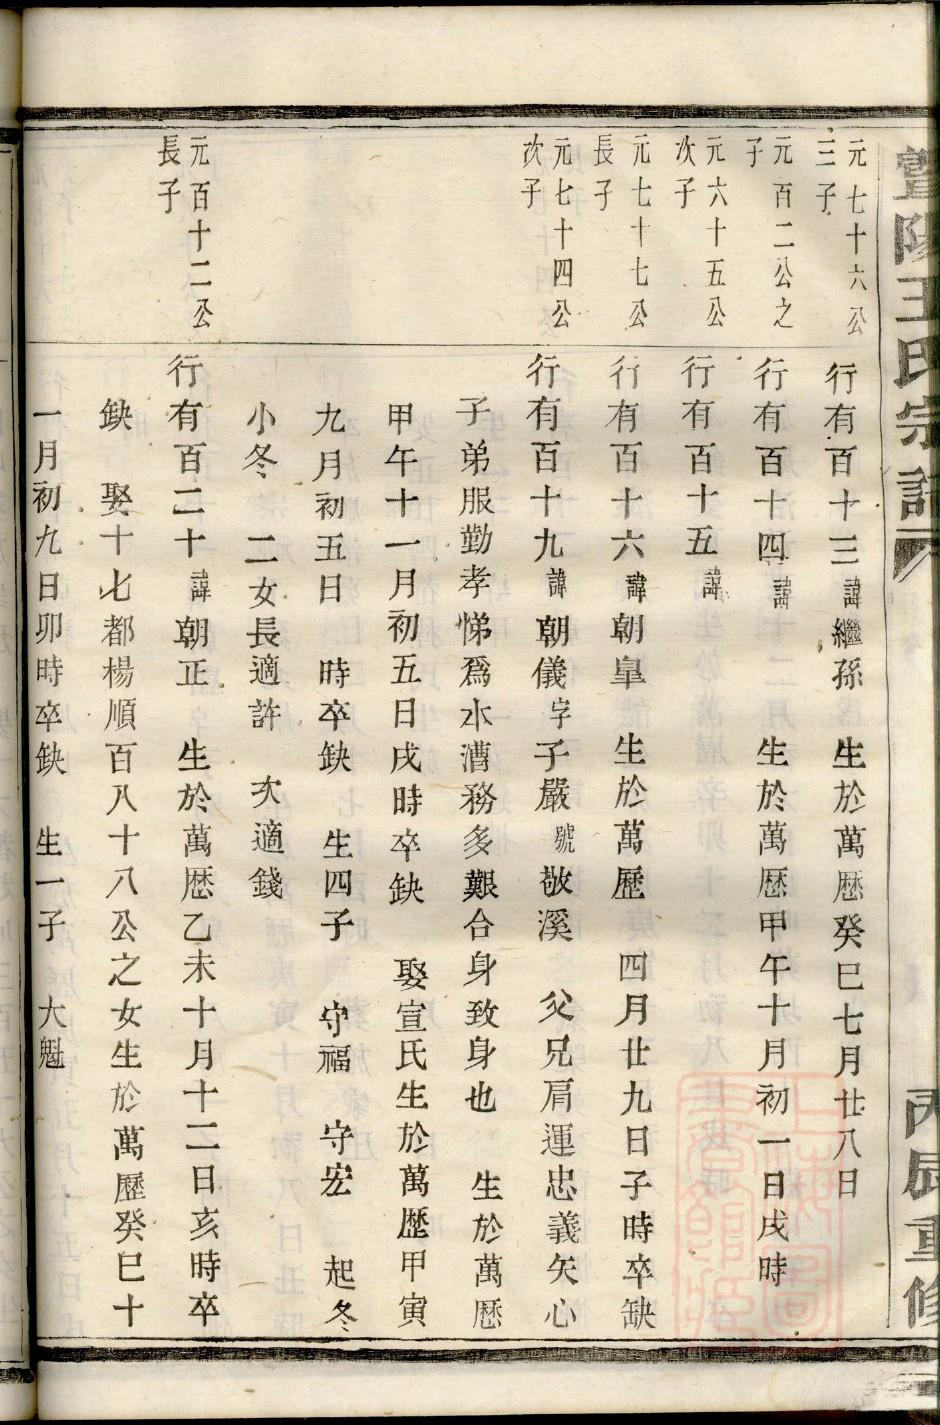 暨陽王氏宗譜
丙辰重修
元七十六公
三子
行有百十三諱繼孫 生於萬歷癸巳七月廿八日
元百二公之
子
行有百十四諱 生於萬歷甲午十月初一日戌時
元六十五公
次子
行有百十五諱
元七十七公
長子
行有百十六諱朝皐 生於萬歷 四月廿九日子時卒缺
元七十四公
次子
行有百十九諱朝儀字子嚴號敬溪 父兄肩運忠義矢心
子弟服勤孝悌爲水漕務多艱合身致身也 生於萬歷
甲午十一月初五日戌時卒缺 娶宣氏生於萬歷甲寅
九月初五日 時卒缺 生四子 守福 守宏 起冬
小冬 二女長適許 次適錢
元百十二公
長子
行有百二十諱朝正 生於萬歷乙未十月十二日亥時卒
缺 娶十七都楊順百八十八公之女生於萬歷癸巳十
一月初九日卯時卒缺 生一子 大魁